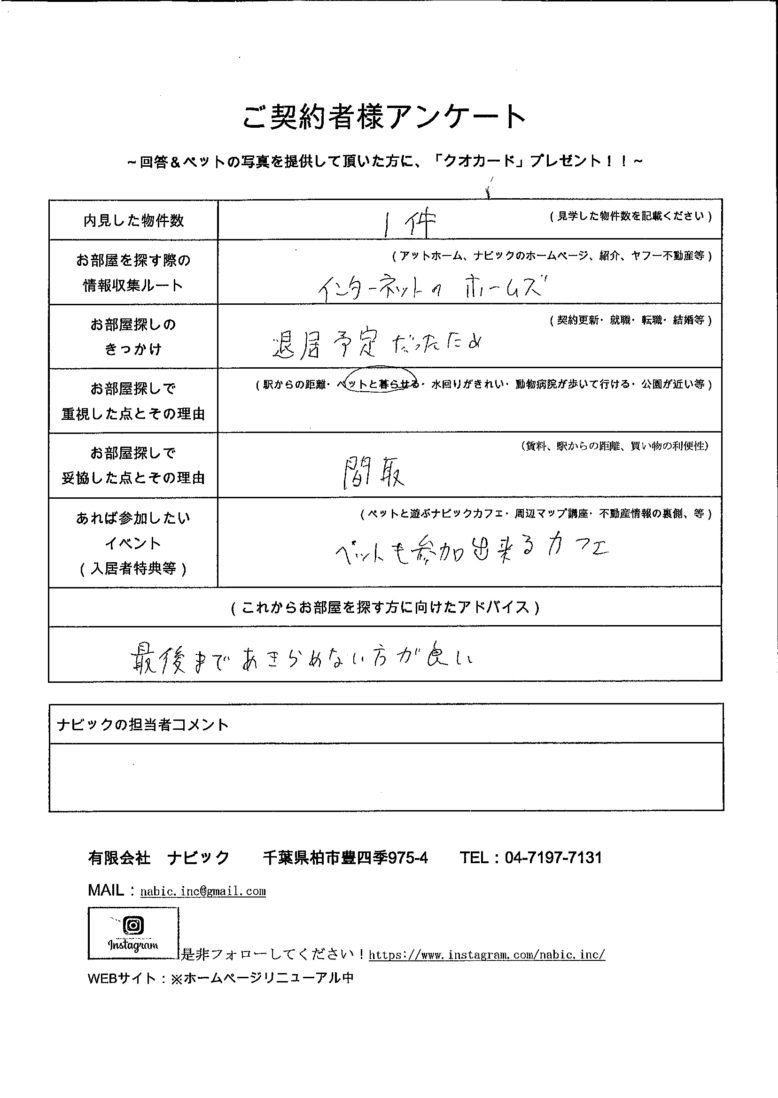 ご契約者様アンケート
~回答&ペットの写真を提供して頂いた方に、「クオカード」プレゼント!!~
内見した物件数
(見学した物件数を記載ください)
1件
お部屋を探す際の
情報収集ルート
(アットホーム、ナビックのホームページ、紹介、ヤフー不動産等)
インターネットのホームズ
お部屋探しの
きっかけ
(契約更新・就職・転職・結婚等)
退居予定だったため
お部屋探しで
重視した点とその理由
(駅からの距離・ペットと暮らせる・水回りがきれい・動物病院が歩いて行ける・公園が近い等)
お部屋探しで
妥協した点とその理由
(賃料、駅からの距離、買い物の利便性)
間取
あれば参加したい
イベント
(入居者特典等)
(ペットと遊ぶナビックカフェ・周辺マップ講座・不動産情報の裏側、等)
ペットも参加出来るカフェ
(これからお部屋を探す方に向けたアドバイス)
最後まであきらめない方が良い
ナビックの担当者コメント
有限会社 ナビック 千葉県柏市豊四季975-4 TEL:04-7197-7131
MAIL:nabic.inc@gmail.com
Instagram
是非フォローしてください!https://www.instagram.com/nabic.inc/
WEBサイト:※ホームページリニューアル中